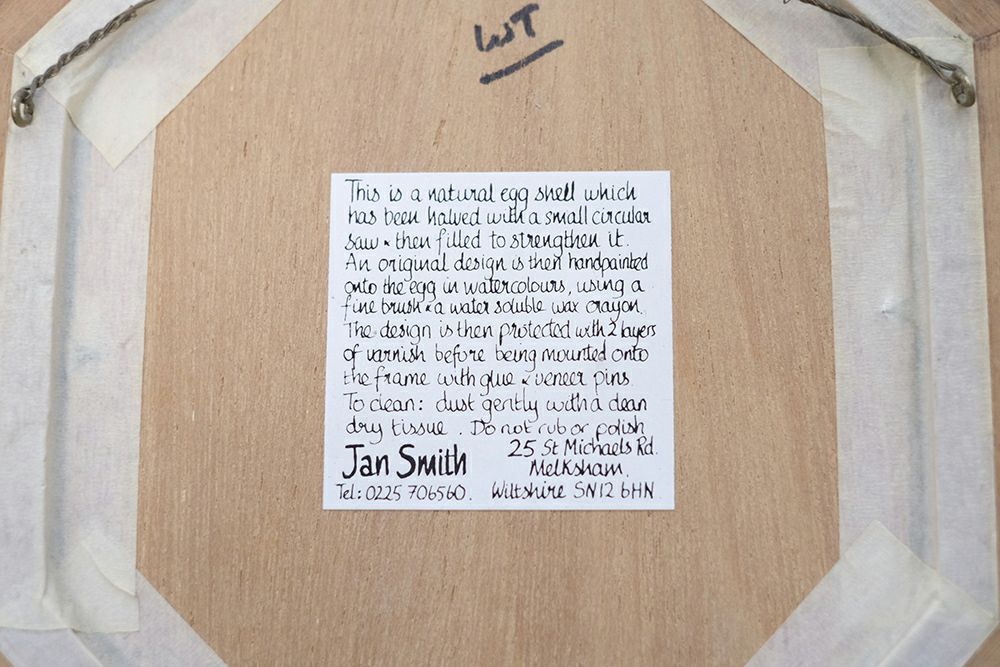 WT
This is a natural egg shell which
has been halved with a small circular
saw & then filled to strengthen it.
An original design is then handpainted
onto the egg in watercolours, using a
fine brush & a water soluble wax crayon.
The design is then protected with 2 layers
of varnish before being mounted onto
the frame with glue & veneer pins.
To clean: dust gently with a clean
dry tissue. Do not rub or polish
Jan Smith
25 St Michaels Rd.
Melksham.
Tel: 0225 706560. Wiltshire SN12 6HN.